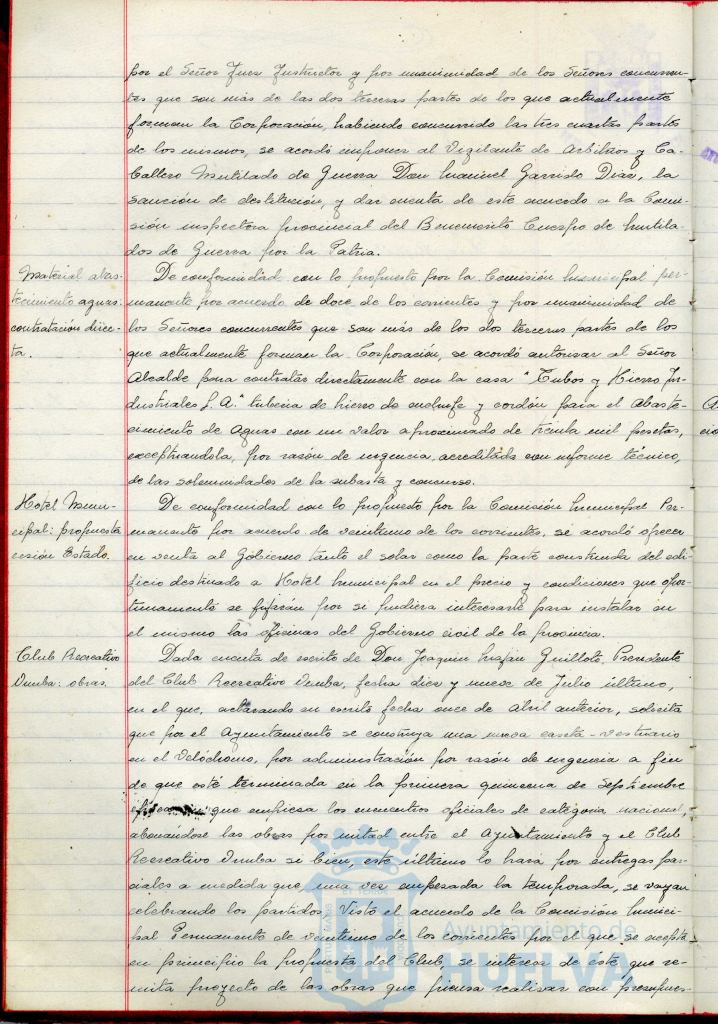 por el Señor Juez Instructor y por unanimidad de los Señores concurren-
tes que son más de las dos terceras partes de los que actualmente
forman la Corporación, habiendo concurrido las tres cuartas partes
de los mismos, se acordó imponer al Vigilante de Arbitrios y Ca-
ballero Mutilado de Guerra Don Manuel Garrido Diaz, la
sanción de destitución, y dar cuenta de este acuerdo a la Comi-
sión inspectora provincial del Benemérito Cuerpo de Mutila-
dos de Guerra por la Patria.
Material abas-
tecimiento aguas:
contratación direc-
ta.
De conformidad con lo propuesto por la Comisión Municipal per-
manente por acuerdo de doce de los corrientes y por unanimidad de
los Señores concurrentes que son más de las dos terceras partes de los
que actualmente forman la Corporación, se acordó autorizar al Señor
Alcalde para contratar directamente con la casa "Tubos y Hierro In-
dustriales S. A." tuberia de hierro de enchufe y cordón para el Abaste-
cimiento de Aguas con un valor aproximado de treinta mil pesetas,
exceptuandola, por razón de urgencia, acreditada con informe técnico,
de las solemnidades de la subasta y concurso.
Hotel Muni-
cipal: propuesta
cesión Estado.
De conformidad con lo propuesto por la Comisión Municipal Per-
manente por acuerdo de veintiuno de los corrientes, se acordó ofrecer
en venta al Gobierno tanto el solar como la parte construida del edi-
ficio destinado a Hotel Municipal en el precio y condiciones que opor-
tunamente se fijarán por si pudiera interesarle para instalar en
el mismo las oficinas del Gobierno civil de la provincia.
Club Recreativo
Onuba: obras.
Dada cuenta de escrito de Don Joaquin Guillote, Presidente
del Club Recreativo Onuba, fecha diez y nueve de Julio último,
en el que, aclarando su escrito fecha once de Abril anterior, solicita
que por el Ayuntamiento se construya una nueva caseta-vestuario
en el Velódromo, por administración por razón de urgencia a fin
de que esté terminada en la primera quincena de Septiembre
que empieza los encuentros oficiales de categoria nacional,
abonándose las obras por mitad entre el Ayuntamiento y el Club
Recreativo Onuba si bien, este último lo hará por entregas par-
ciales a medida que una vez empezada la temporada, se vayan
celebrando los partidos. Visto el acuerdo de la Comisión Munici-
pal Permanente de veintiuno de los corrientes por el que se acepta
en principio la propuesta del Club, se interesa de éste que re-
mita proyecto de las obras que piensa realizar con presupues-
Ayuntamiento de
HUELVA